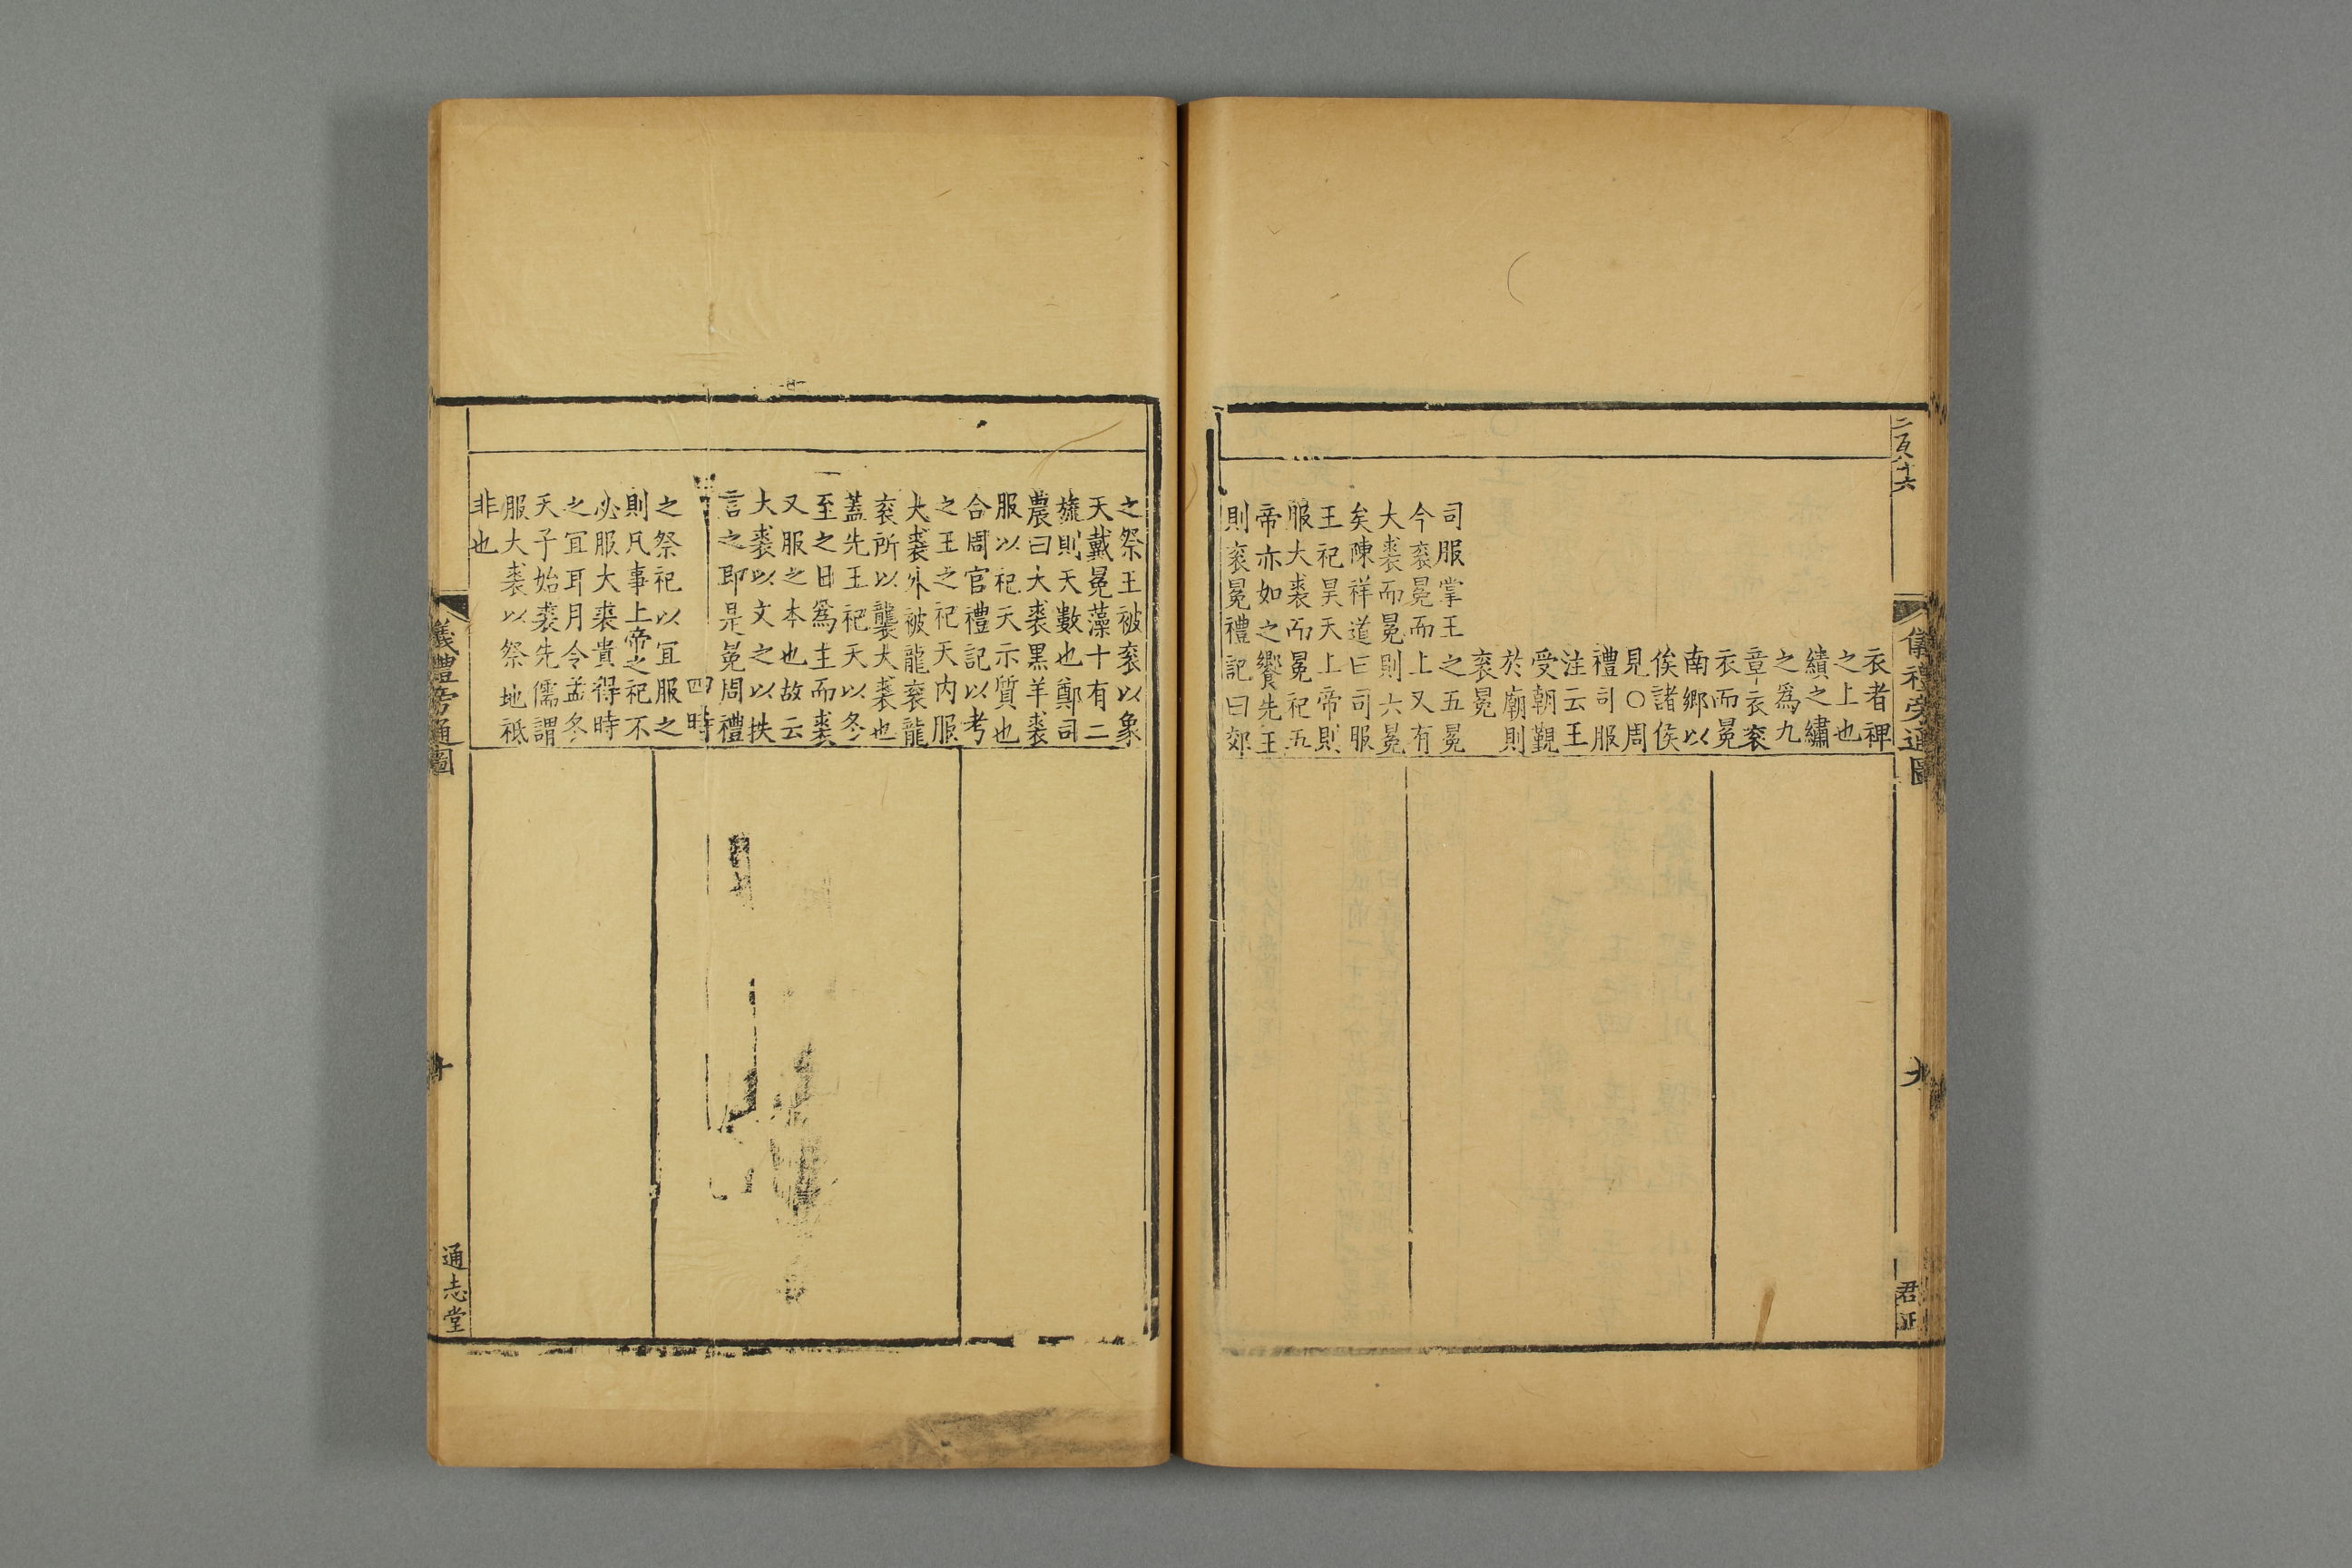 二百十六
儀禮旁通圖
九
君正
衣者裨
之上也
績之繡
之爲九
章衣衮
衣而冕
南鄉以
俟諸侯
見〇周
禮司服
注云王
受朝覲
於廟則
衮冕
司服掌王之五冕
今衮冕而上又有
大裘而冕則六冕
矣陳祥道曰司服
王祀昊天上帝則
服大裘而冕祀五
帝亦如之饗先王
則衮冕禮記曰郊
之祭王被衮以象
天戴冕藻十有二
旒則天數也鄭司
農曰大裘黑羊裘
服以祀天示質也
合周官禮記以考
之王之祀天内服
大裘外被龍衮龍
衮所以襲大裘也
蓋先王祀天以冬
至之日爲主而裘
又服之本也故云
大裘以文之以挾
言之即是冕周禮
四時
之祭祀以宜服之
則凡事上帝之祀不
必服大裘貴得時
之宜耳月令孟冬
天子始裘先儒謂
服大裘以祭地祇
非也
儀禮旁通圖
十
通志堂